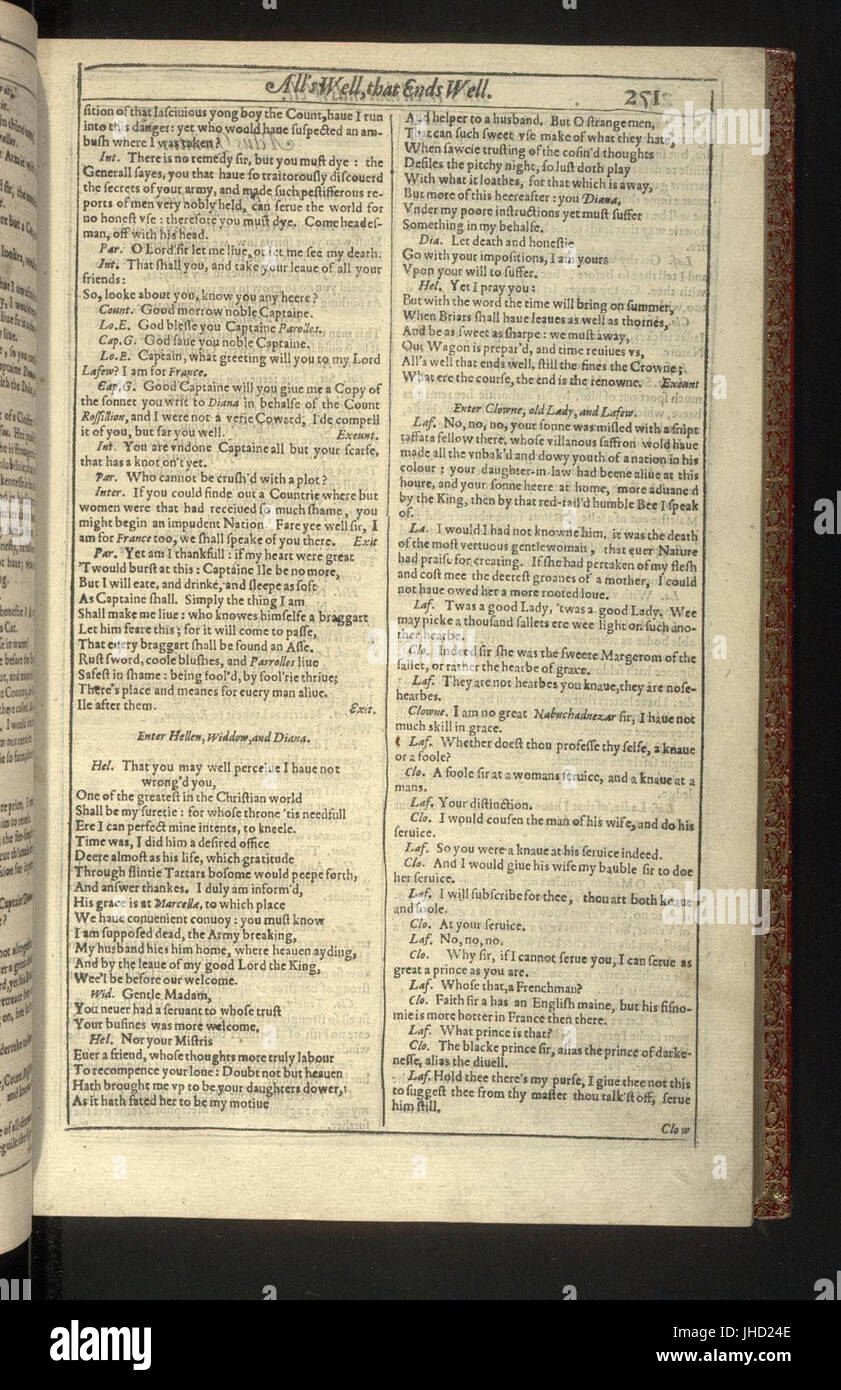 All's Well, that Ends Well.
251
sition of that lasciuious yong boy the Count, haue I run
into this danger: yet who would haue suspected an am-
bush where I was taken?
Int. There is no remedy sir, but you must dye: the
Generall sayes, you that haue so traitorously discouerd
the secrets of your army, and made such pestifferous re-
ports of men very nobly held, can serue the world for
no honest vse: therefore you must dye. Come heades-
man, off with his head.
Par. O Lord sir let me liue, or let me see my death.
Int. That shall you, and take your leaue of all your
friends:
So, looke about you, know you any heere?
Count. Good morrow noble Captaine.
Lo.E. God blesse you Captaine Parolles.
Cap.G. God saue you noble Captaine.
Lo.E. Captain, what greeting will you to my Lord
Lafew? I am for France.
Cap.G. Good Captaine will you giue me a Copy of
the sonnet you writ to Diana in behalfe of the Count
Rossillion, and I were not a verie Coward, I'de compell
it of you, but far you well. Exeunt.
Int. You are vndone Captaine all but your scarfe,
that has a knot on't yet.
Par. Who cannot be crush'd with a plot?
Inter. If you could finde out a Countrie where but
women were that had receiued so much shame, you
might begin an impudent Nation. Fare yee well sir, I
am for France too, we shall speake of you there. Exit
Par. Yet am I thankfull: if my heart were great
'Twould burst at this: Captaine Ile be no more,
But I will eate, and drinke, and sleepe as soft
As Captaine shall. Simply the thing I am
Shall make me liue: who knowes himselfe a braggart
Let him feare this; for it will come to passe,
That euery braggart shall be found an Asse.
Rust sword, coole blushes, and Parrolles liue
Safest in shame: being fool'd, by fool'rie thriue;
There's place and meanes for euery man aliue.
Ile after them. Exit.
Enter Hellen, Widdow, and Diana.
Hel. That you may well perceiue I haue not
wrong'd you,
One of the greatest in the Christian world
Shall be my suretie: for whose throne 'tis needfull
Ere I can perfect mine intents, to kneele.
Time was, I did him a desired office
Deere almost as his life, which gratitude
Through flintie Tartars bosome would peepe forth,
And answer thankes. I duly am inform'd,
His grace is at Marcellæ, to which place
We haue conuenient conuoy: you must know
I am supposed dead, the Army breaking,
My husband hies him home, where heauen ayding,
And by the leaue of my good Lord the King,
Wee'l be before our welcome.
Wid. Gentle Madam,
You neuer had a seruant to whose trust
Your busines was more welcome.
Hel. Nor your Mistris
Euer a friend, whose thoughts more truly labour
To recompence your loue: Doubt not but heauen
Hath brought me vp to be your daughters dower,
As it hath fated her to be my motiue
And helper to a husband. But O strange men,
That can such sweet vse make of what they hate,
When sawcie trusting of the cosin'd thoughts
Defiles the pitchy night, so lust doth play
With what it loathes, for that which is away,
But more of this heereafter: you Diana,
Vnder my poore instructions yet must suffer
Something in my behalfe.
Dia. Let death and honestie
Go with your impositions, I am yours
Vpon your will to suffer.
Hel. Yet I pray you:
But with the word the time will bring on summer,
When Briars shall haue leaues as well as thornes,
And be as sweet as sharpe: we must away,
Our Wagon is prepar'd, and time reuiues vs,
All's well that ends well, still the fines the Crowne;
What ere the course, the end is the renowne. Exeunt
Enter Clowne, old Lady, and Lafew.
Laf. No, no, no, your sonne was misled with a snipt
taffata fellow there, whose villanous saffron wold haue
made all the vnbak'd and dowy youth of a nation in his
colour: your daughter-in-law had beene aliue at this
houre, and your sonne heere at home, more aduanc'd
by the King, then by that red-tail'd humble Bee I speak
of.
La. I would I had not knowne him, it was the death
of the most vertuous gentlewoman, that euer Nature
had praise for creating. If she had pertaken of my flesh
and cost mee the deerest groanes of a mother, I could
not haue owed her a more rooted loue.
Laf. Twas a good Lady, 'twas a good Lady. Wee
may picke a thousand sallets ere wee light on such ano-
ther hearbe.
Clo. Indeed sir she was the sweete Margerom of the
sallet, or rather the hearbe of grace.
Laf. They are not hearbes you knaue, they are nose-
hearbes.
Clowne. I am no great Nabuchadnezar sir, I haue not
much skill in grace.
Laf. Whether doest thou professe thy selfe, a knaue
or a foole?
Clo. A foole sir at a womans seruice, and a knaue at a
mans.
Laf. Your distinction.
Clo. I would cousen the man of his wife, and do his
seruice.
Laf. So you were a knaue at his seruice indeed.
Clo. And I would giue his wife my bauble sir to doe
her seruice.
Laf. I will subscribe for thee, thou art both knaue
and foole.
Clo. At your seruice.
Laf. No, no, no.
Clo. Why sir, if I cannot serue you, I can serue as
great a prince as you are.
Laf. Whose that, a Frenchman?
Clo. Faith sir a has an English maine, but his fisno-
mie is more hotter in France then there.
Laf. What prince is that?
Clo. The blacke prince sir, alias the prince of darke-
nesse, alias the diuell.
Laf. Hold thee there's my purse, I giue thee not this
to suggest thee from thy master thou talk'st off, serue
him still.
Clow
alamy
Image ID: JHD24E
www.alamy.com